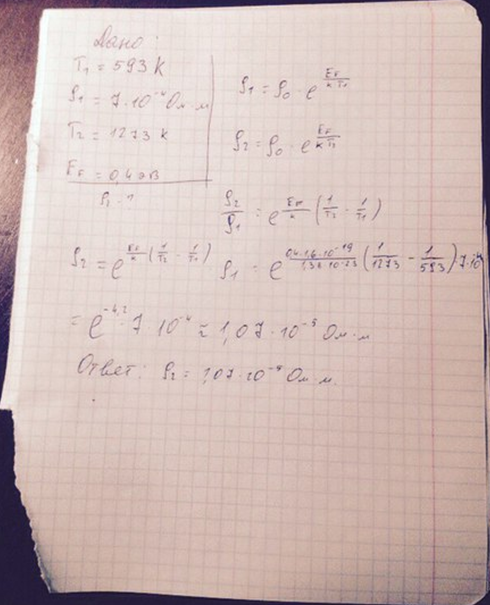 Дано:
T₁ = 593 K
ρ₁ = 7·10⁻⁴ Ом·м
T₂ = 1273 K
E_F = 0,4 эВ
ρ₂ - ?
ρ₁ = ρ₀ · e^(E_F/(kT₁))
ρ₂ = ρ₀ · e^(E_F/(kT₂))
ρ₂/ρ₁ = e^(E_F/k (1/T₂ - 1/T₁))
ρ₂ = e^(E_F/k (1/T₂ - 1/T₁)) ρ₁ = e^(0,4·1,6·10⁻¹⁹/1,38·10⁻²³ (1/1273 - 1/593)) 7·10⁻⁴
= e^(-4,2) · 7 10⁻⁴ ≈ 1,07·10⁻⁵ Ом·м
Ответ: ρ₂ = 1,07·10⁻⁵ Ом·м.